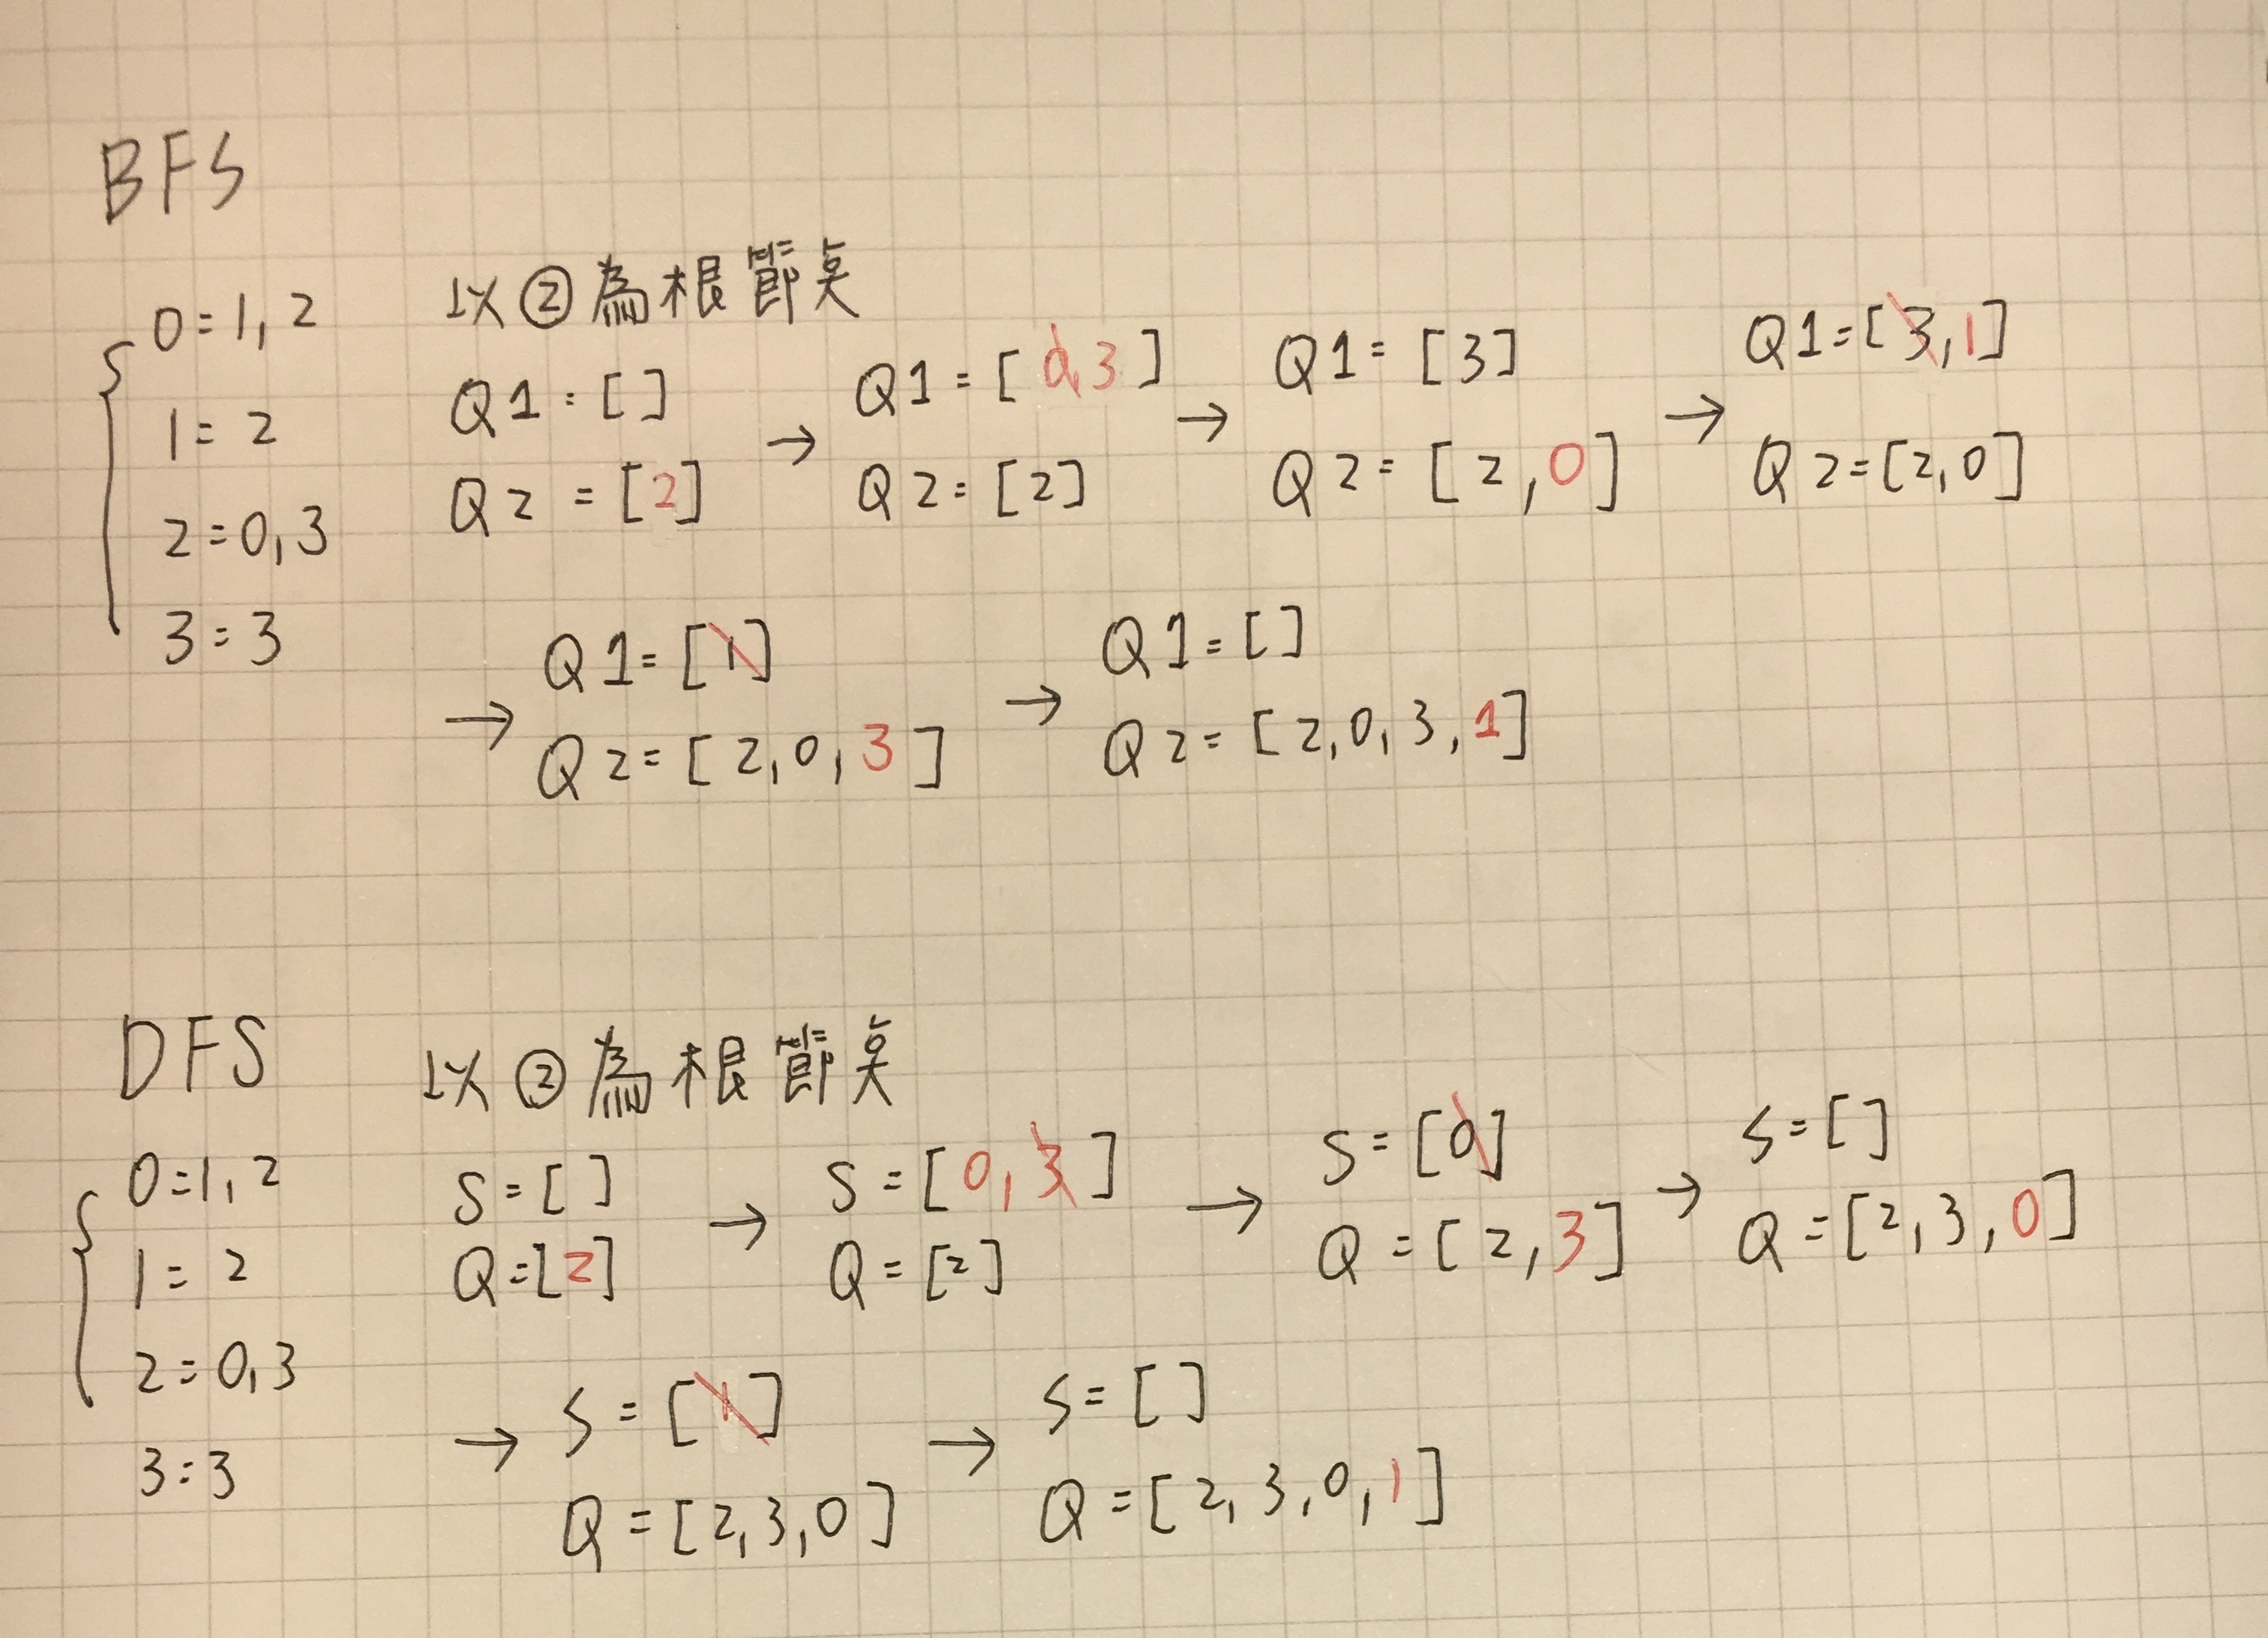 BFS
0=1,2
1=2
2=0,3
3=3
以②為根節点
Q1=[]
Q2=[2]
→
Q1=[0,3]
Q2=[2]
→
Q1=[3]
Q2=[2,0]
→
Q1=[3,1]
Q2=[2,0]
→
Q1=[1]
Q2=[2,0,3]
→
Q1=[]
Q2=[2,0,3,1]
DFS
0=1,2
1=2
2=0,3
3=3
以②為根節点
S=[]
Q=[2]
→
S=[0,3]
Q=[2]
→
S=[0]
Q=[2,3]
→
S=[]
Q=[2,3,0]
→
S=[1]
Q=[2,3,0]
→
S=[]
Q=[2,3,0,1]